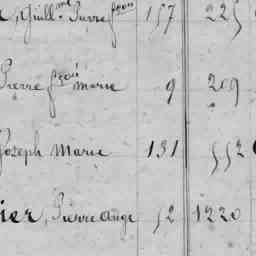 Guill.me Pierre fçois 157 225
Pierre fçois marie 9 209
Joseph Marie 131 552
ier, Pierre Ange 52 1220